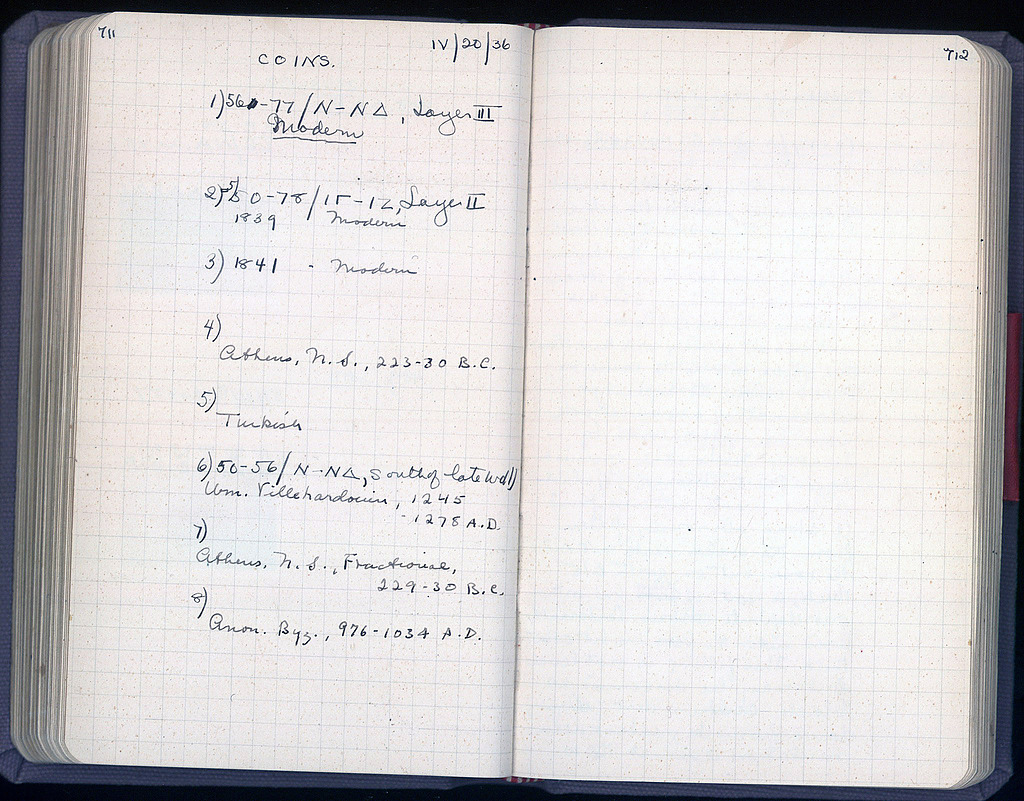 711
IV/20/36
COINS.
1) 56-77/N-NΔ, Layer III
Modern
2) 50-78/IΓ-IΖ, Layer II
1839 Modern
3) 1841 - Modern
4)
Athens, N.S., 223-30 B.C.
5)
Turkish
6) 50-56/N-NΔ, South of late wall
Wm. Villehardouin, 1245
-1278 A.D.
7)
Athens, N.S., Fractional,
229-30 B.C.
8)
Anon. Byz., 976-1034 A.D.
712